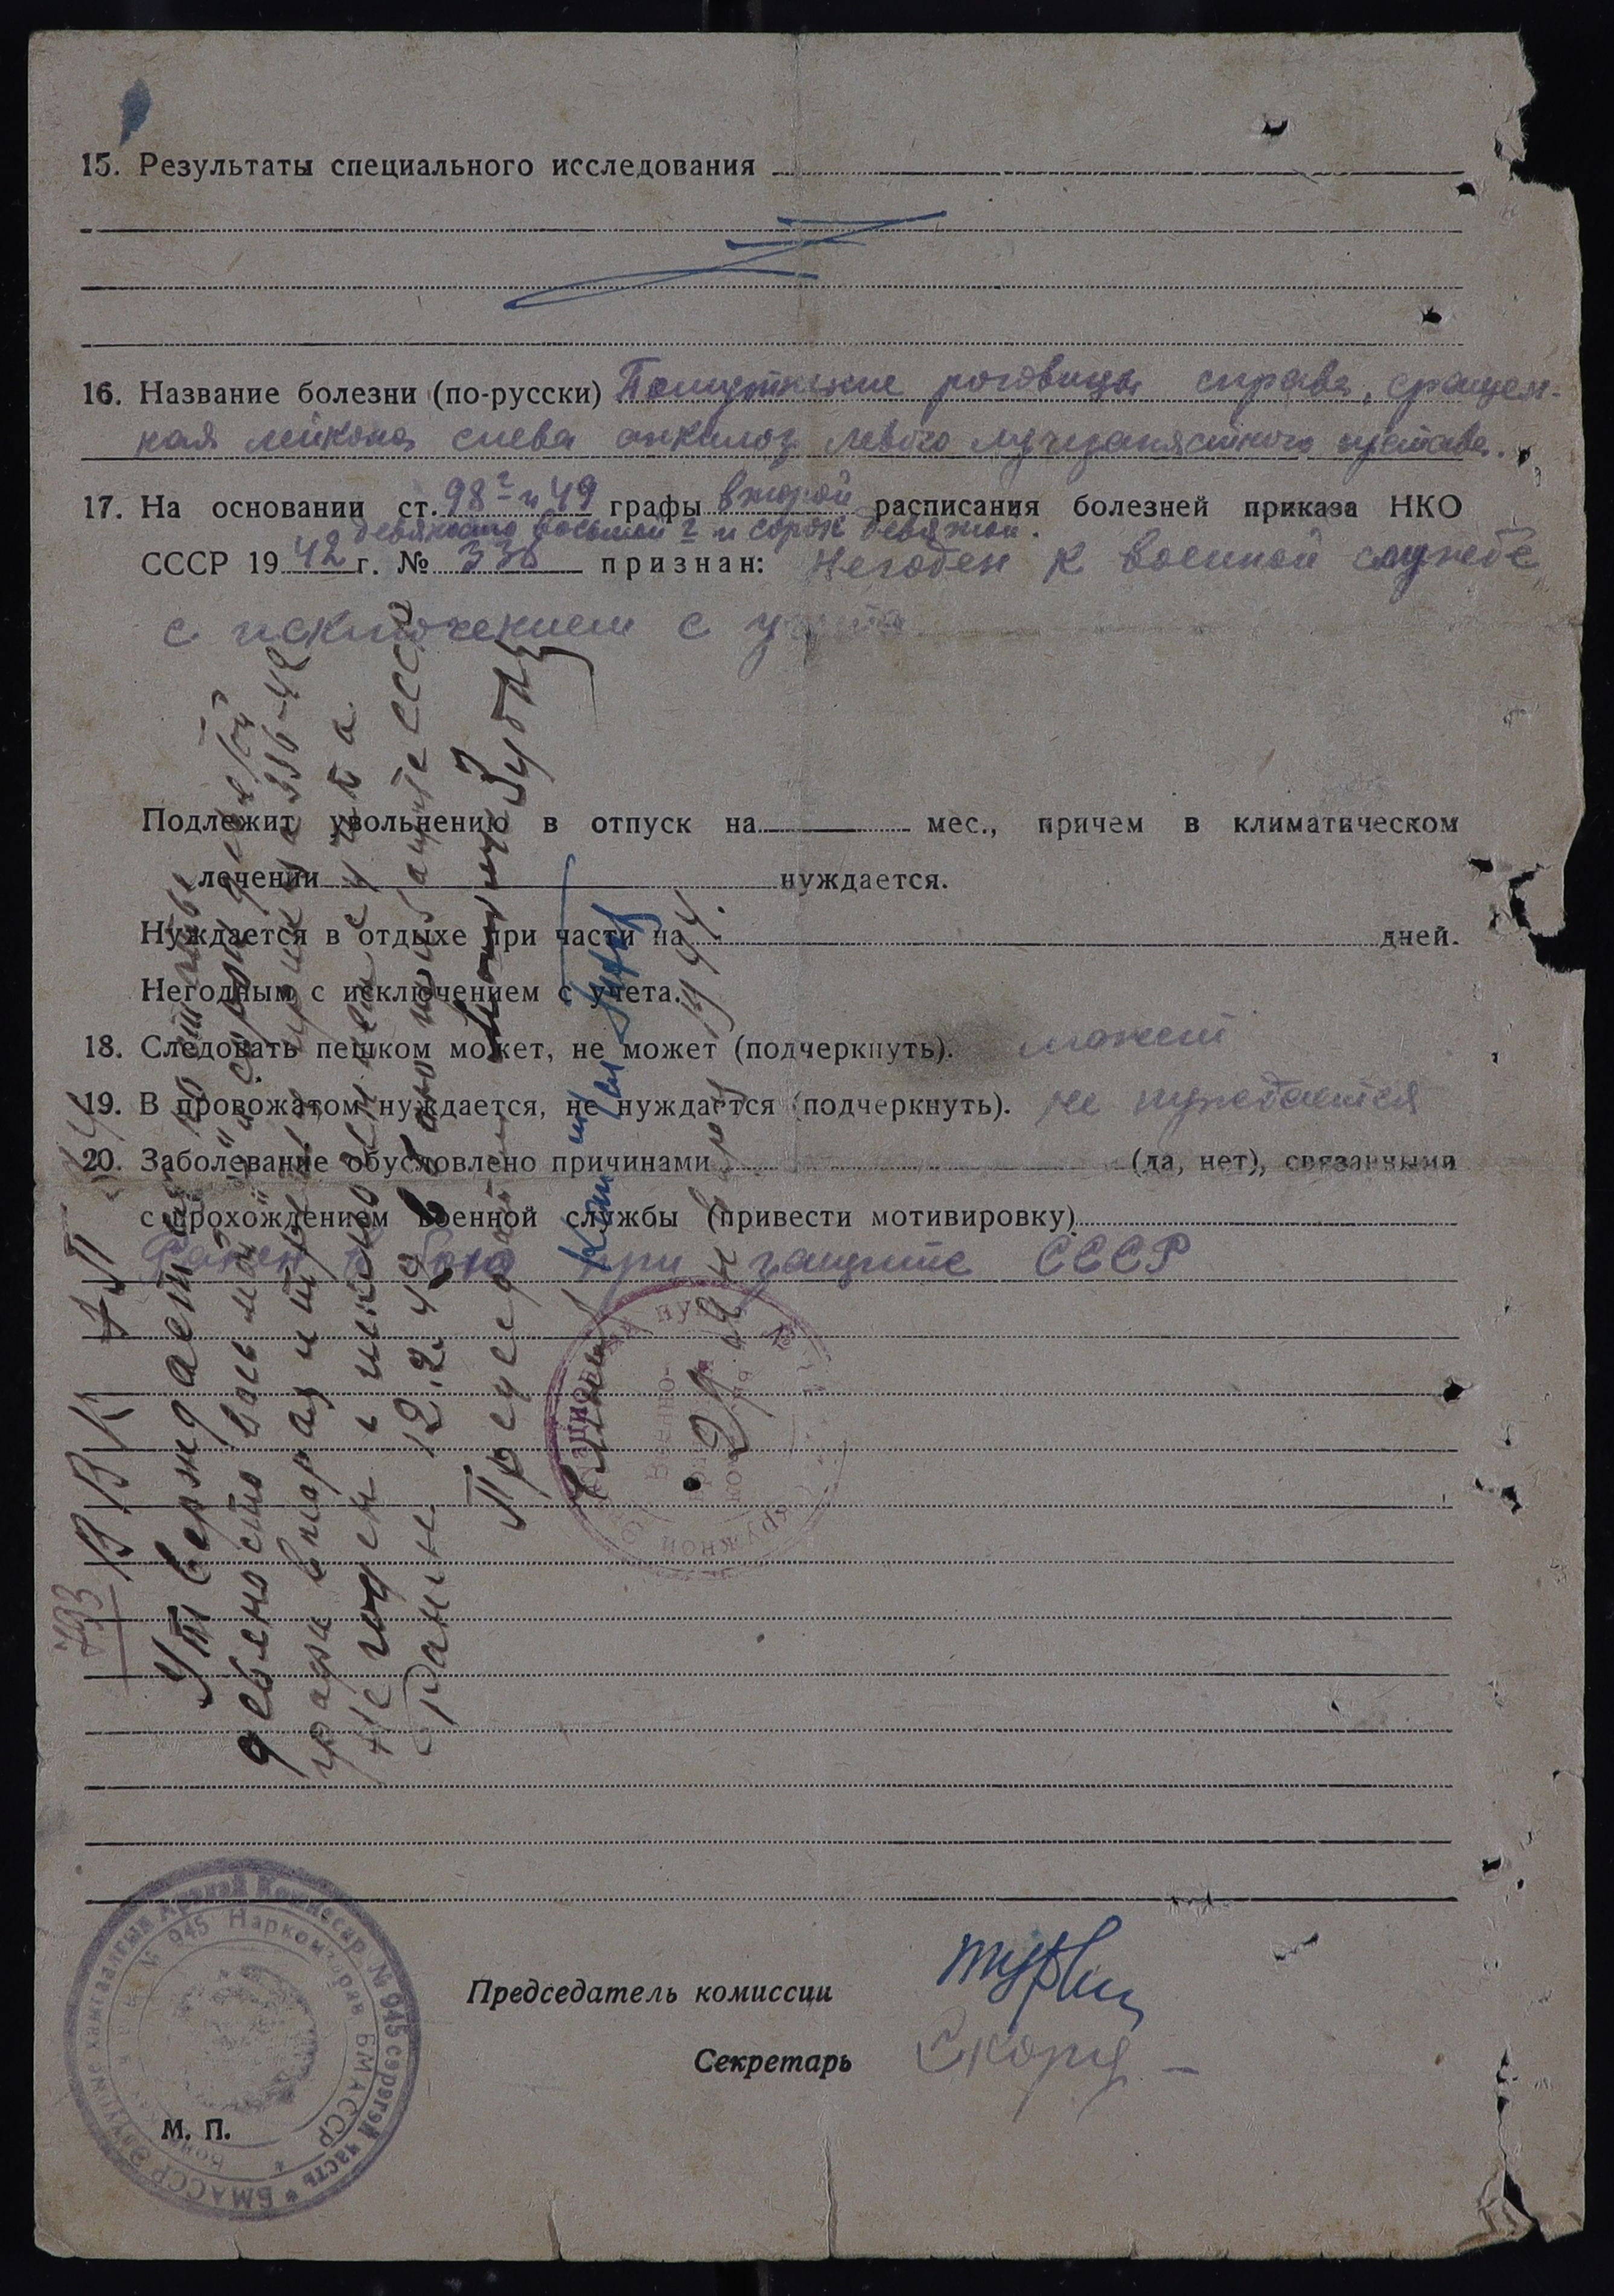 15. Результаты специального исследования
16. Название болезни (по-русски) Помутнение роговицы справа, сращен-
ная лейкома слева анкилоз левого лучезапястного сустава.
17. На основании ст. 98 г и 49 графы второй расписания болезней приказа НКО
девяносто восьмой г и сорок девятой.
СССР 19 42 г. № 336 признан: Негоден к военной службе
с исключением с учета
Подлежит увольнению в отпуск на мес., причем в климатическом
лечении нуждается.
Нуждается в отдыхе при части на дней.
Негодным с исключением с учета.
18. Следовать пешком может, не может (подчеркнуть). может
19. В провожатом нуждается, не нуждается (подчеркнуть). не нуждается
20. Заболевание обусловлено причинами (да, нет), связанными
с прохождением военной службы (привести мотивировку)
Ранен в бою при защите СССР
793
Утверждает по статье
девяносто восьмой "г" и сорок девятой
графа вторая приказа 336-42
Негоден с исключением с учета
Ранен 12.2.42 в бою при защите СССР
Председатель
Члены
29 января 1944.
Председатель комиссии
Секретарь Скорд
М. П.
БМАССР Элүүрые хамгаалгын Арадай Комиссар № 945 сэрэгэй часть
№ 945 Наркомздрав БМАССР